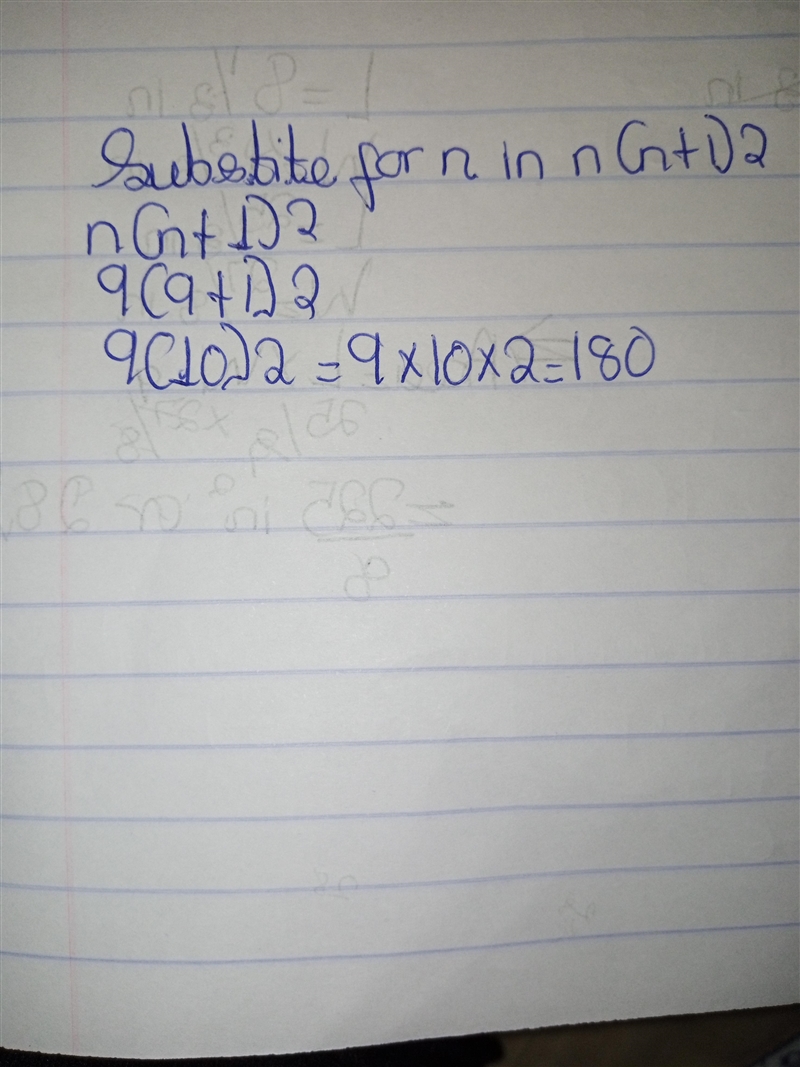 Substite for n in n(n+1)2
n(n+1)2
9(9+1)2
9(10)2 = 9×10×2=180